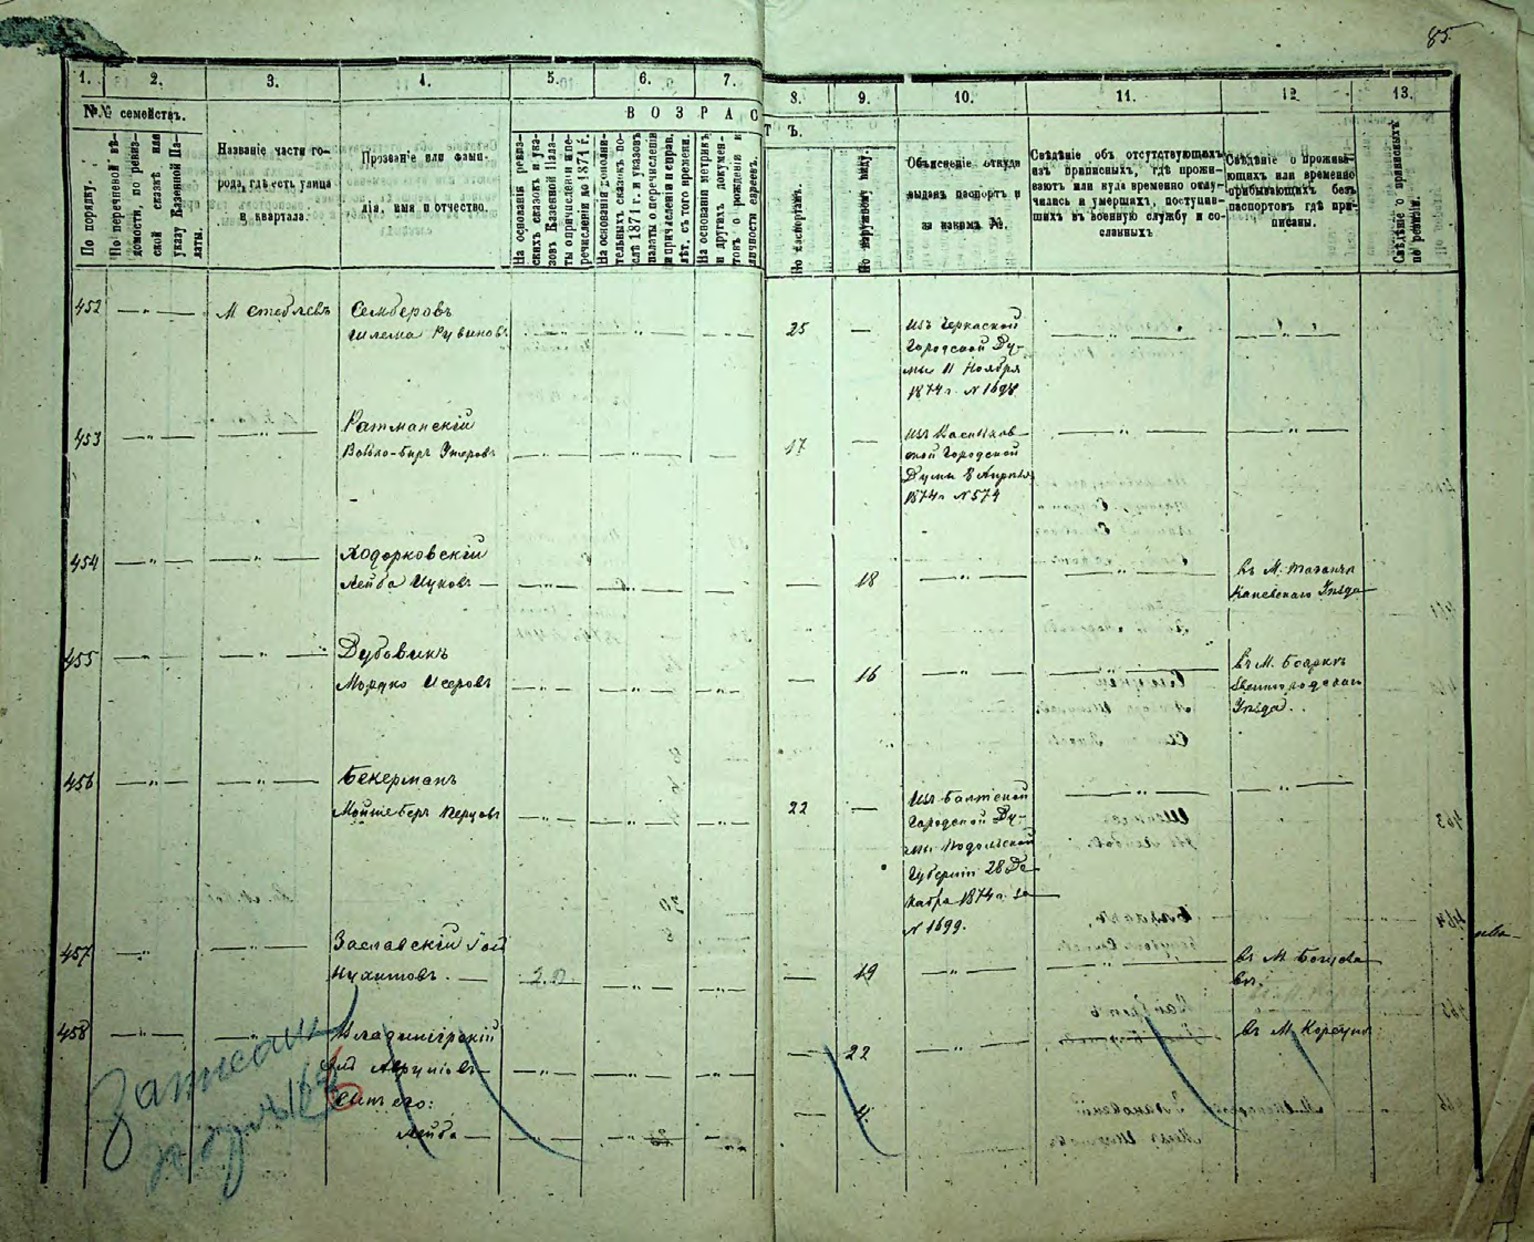 85.
1. 2. 3. 4. 5. 6. 7. 8. 9. 10. 11. 12. 13.
№№ семействъ.
ВОЗРАСТЪ.
По порядку.
По перечневой вѣ-
домости, по ревиз-
ской сказкѣ или
указу Казенной Па-
латы.
Названіе части го-
рода, гдѣ есть улица
и квартала.
Прозваніе или фами-
лія, имя и отчество.
На основаніи ревиз-
скихъ сказокъ и ука-
зовъ Казенной Пала-
ты о причисленіи и пе-
речисленіи до 1871 г.
На основаніи дополни-
тельныхъ сказокъ по-
слѣ 1871 г. и указовъ
палаты о перечисленіи
и причисленіи и справ.
лѣт. съ того времени.
На основаніи метрикъ
и другихъ докумен-
товъ о рожденіи и
личности евреевъ.
По паспортамъ.
По наружному виду.
Объясненіе откуда
выданъ паспортъ и
за какимъ №.
Свѣдѣніе объ отсутствующихъ
изъ приписныхъ, гдѣ прожи-
ваютъ или куда временно отлу-
чились и умершихъ, поступив-
шихъ въ военную службу и со-
сланныхъ
Свѣдѣніе о прожива-
ющихъ или временно
прибывающихъ безъ
паспортовъ гдѣ при-
писаны.
Свѣдѣніе о приписныхъ
по ревизіи.
452 — " — М Стеблевъ Семберовъ
Шлема Рувиновъ 25 —
Изъ Черкаской
Городской Ду-
мы 11 Ноября
1874 г. N 1698
453 — " — — " — Ратманскій
17 —
Городской
Думы 8 Апрѣля
1874 г N 574
454 — " — — " — Ходорковскій
Лейба Ицковъ — 18
въ М.
Каневскаго Уѣзда
455 — " — — " — Дубовикъ
Мордко Исеровъ — 16
въ М. Бояркѣ
Звенигородскаго
Уѣзда.
456 — " — — " — Бекерманъ
Мойше Беръ Перцовъ 22 —
Изъ Балтской
Городской Ду-
мы Подольской
Губерніи 28 Де-
кабря 1874 г. за
N 1699.
457 — " — — " — Заславскій
Нухимовъ. — 19
въ М Богусла-
вѣ.
458 — " — — " — Владимірскій
Авруміовъ — 22
въ М Корсунѣ
Сынъ его:
Лейба — 4
Записанъ